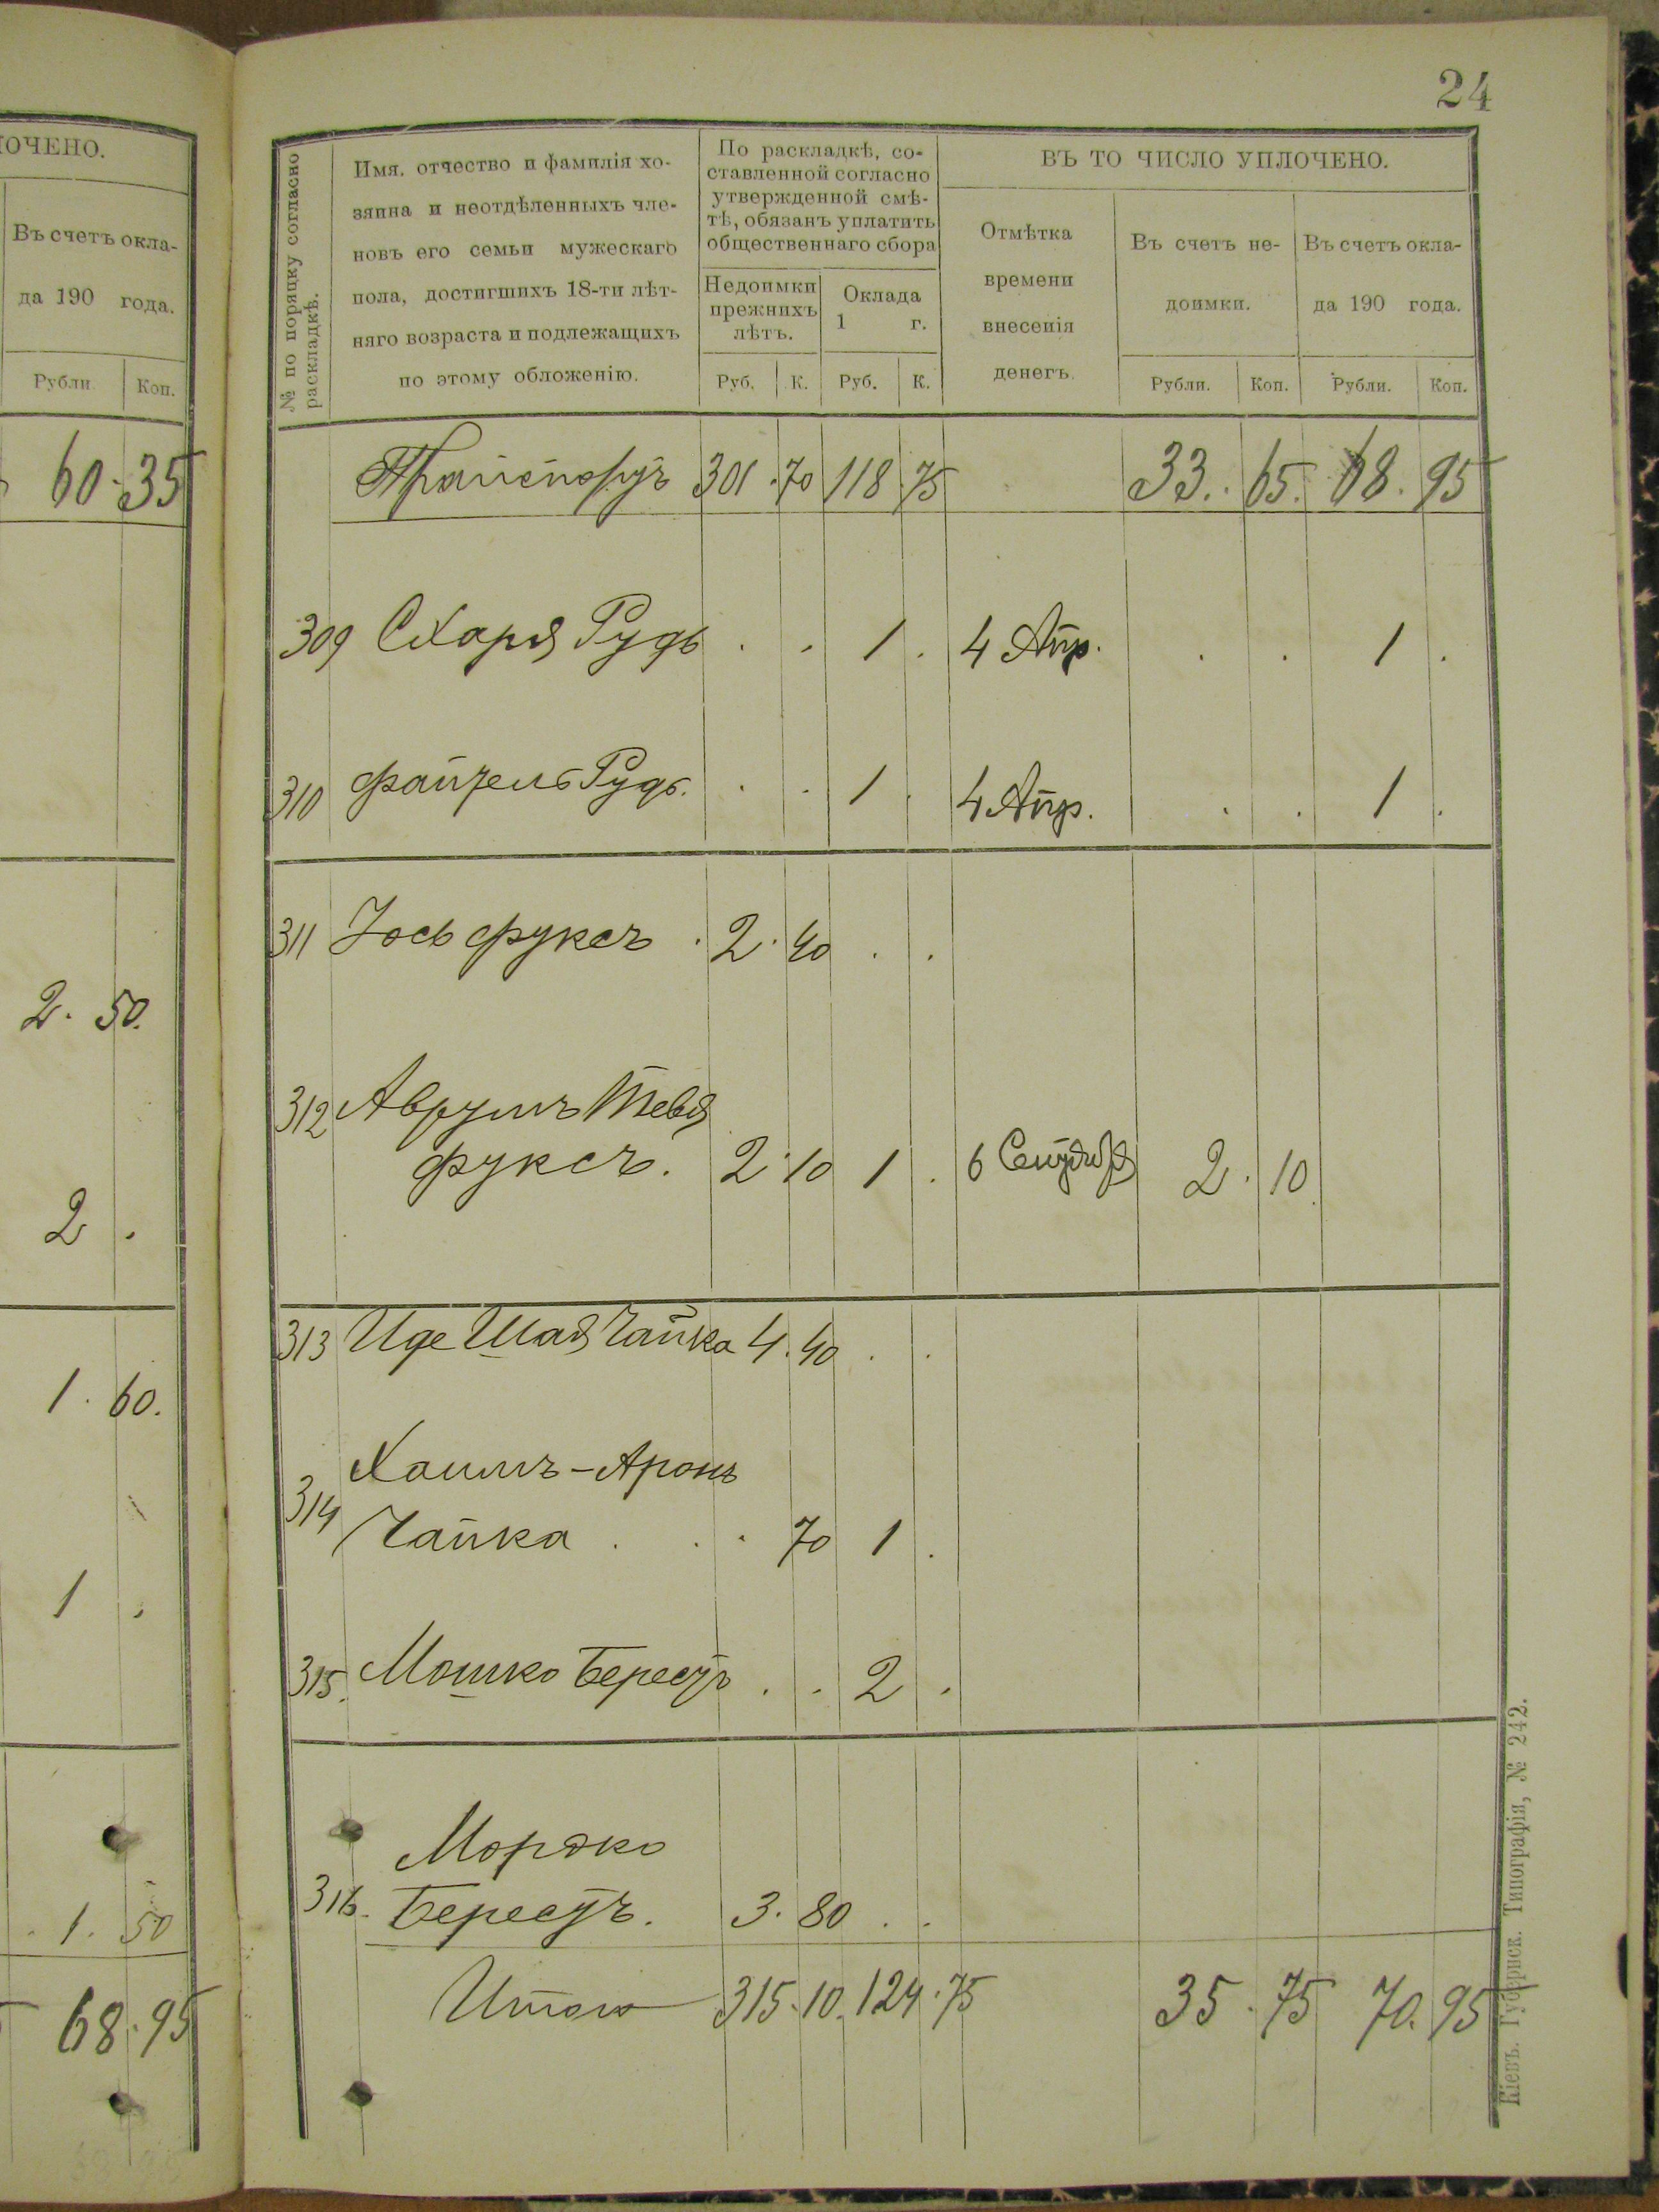 ЛОЧЕНО.
Въ счетъ окла-
да 190 года.
Рубли. Коп.
60. 35
2. 50.
2 .
1. 60.
1 .
1. 50
68. 95
24
№ по порядку согласно
раскладкѣ.
Имя, отчество и фамилія хо-
зяина и неотдѣленныхъ чле-
новъ его семьи мужескаго
пола, достигшихъ 18-ти лѣт-
няго возраста и подлежащихъ
по этому обложенію.
По раскладкѣ, со-
ставленной согласно
утвержденной смѣ-
тѣ, обязанъ уплатить
общественнаго сбора
Недоимки
прежнихъ
лѣтъ.
Руб. К.
Оклада
1 г.
Руб. К.
ВЪ ТО ЧИСЛО УПЛОЧЕНО.
Отмѣтка
времени
внесенія
денегъ.
Въ счетъ не-
доимки.
Рубли. Коп.
Въ счетъ окла-
да 190 года.
Рубли. Коп.
Транспортъ 301. 70 118 75 33. 65. 68. 95
309 Схаря Рудь . . 1 . 4 Апр. . . 1 .
310 Файтель Рудь. . . 1 . 4 Апр. . . 1 .
311 Іось Фуксъ . 2. 40 . .
312 Аврумъ Тевя
Фуксъ. 2. 10 1 . 6 Сентября 2. 10
313 Иде Шая Чайка 4. 40 . .
Хаимъ-Аронъ
314 Чайка . . . 70 1 .
315. Мошко Берестъ . . 2 .
Мордко
316. Берестъ. 3. 80 . .
Итого 315. 10. 124. 75 35. 75 70. 95
Кіевъ. Губернск. Типографія, № 242.